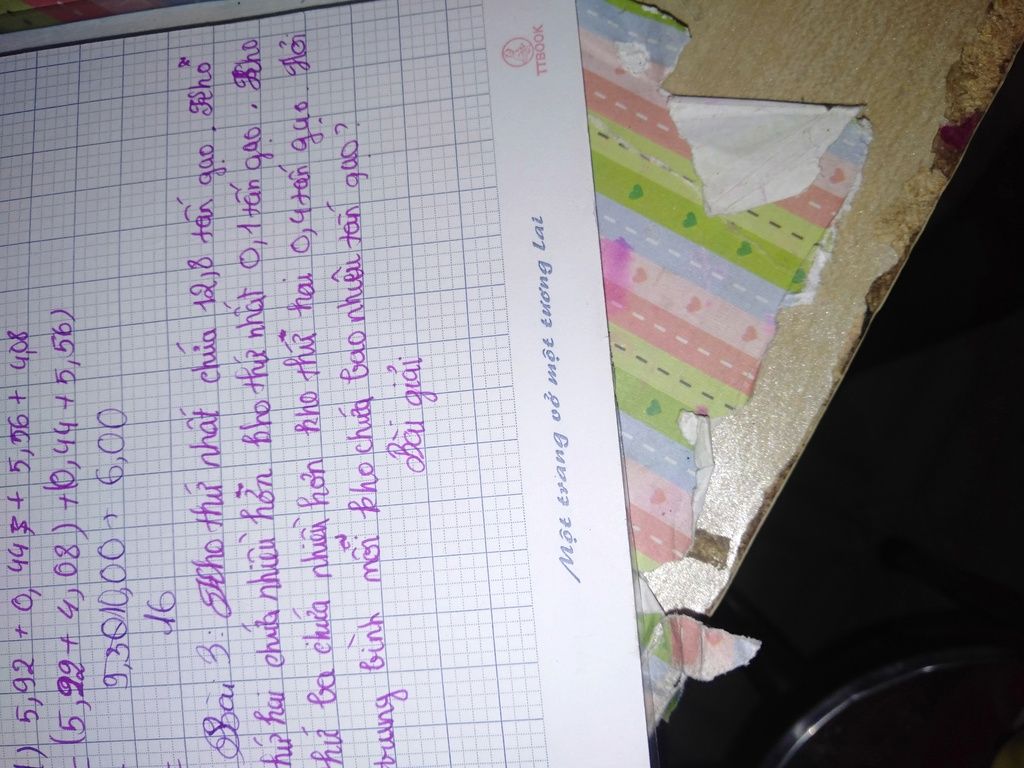 ) 5,92 + 0,44 + 5,56 + 4,08
(5,92 + 4,08) + (0,44 + 5,56)
10,00 + 6,00
= 16
Bài 3: Kho thứ nhất chứa 12,8 tấn gạo. Kho
thứ hai chứa nhiều hơn kho thứ nhất 0,1 tấn gạo. Kho
thứ ba chứa nhiều hơn kho thứ hai 0,4 tấn gạo. Hỏi
trung bình mỗi kho chứa bao nhiêu tấn gạo?
Bài giải
Một trang vở một tương lai
TTBOOK